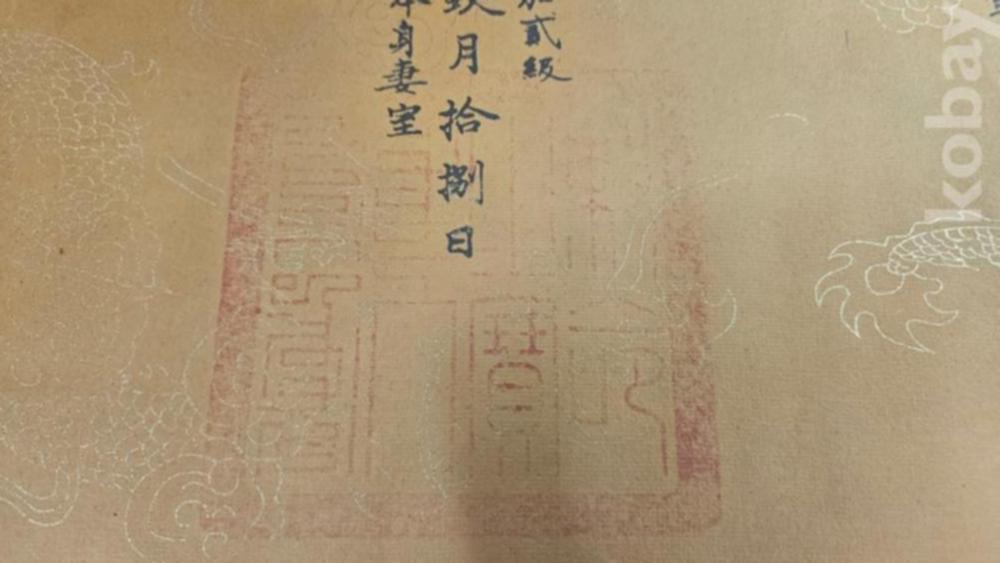 加貳級
玖月拾捌日
本身妻室
kobay